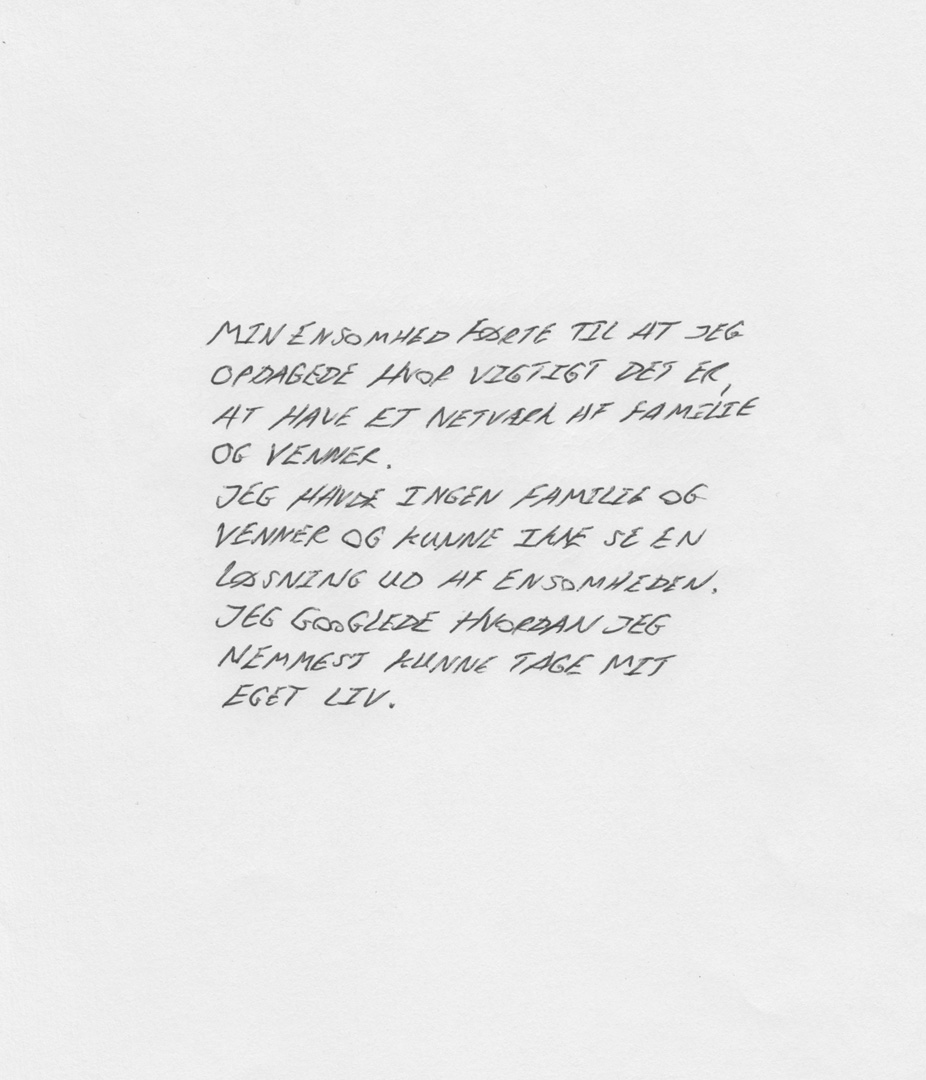 MIN ENSOMHED FØRTE TIL AT JEG
OPDAGEDE HVOR VIGTIGT DET ER,
AT HAVE ET NETVÆRK AF FAMILIE
OG VENNER.
JEG HAVDE INGEN FAMILIE OG
VENNER OG KUNNE IKKE SE EN
LØSNING UD AF ENSOMHEDEN.
JEG GOOGLEDE HVORDAN JEG
NEMMEST KUNNE TAGE MIT
EGET LIV.